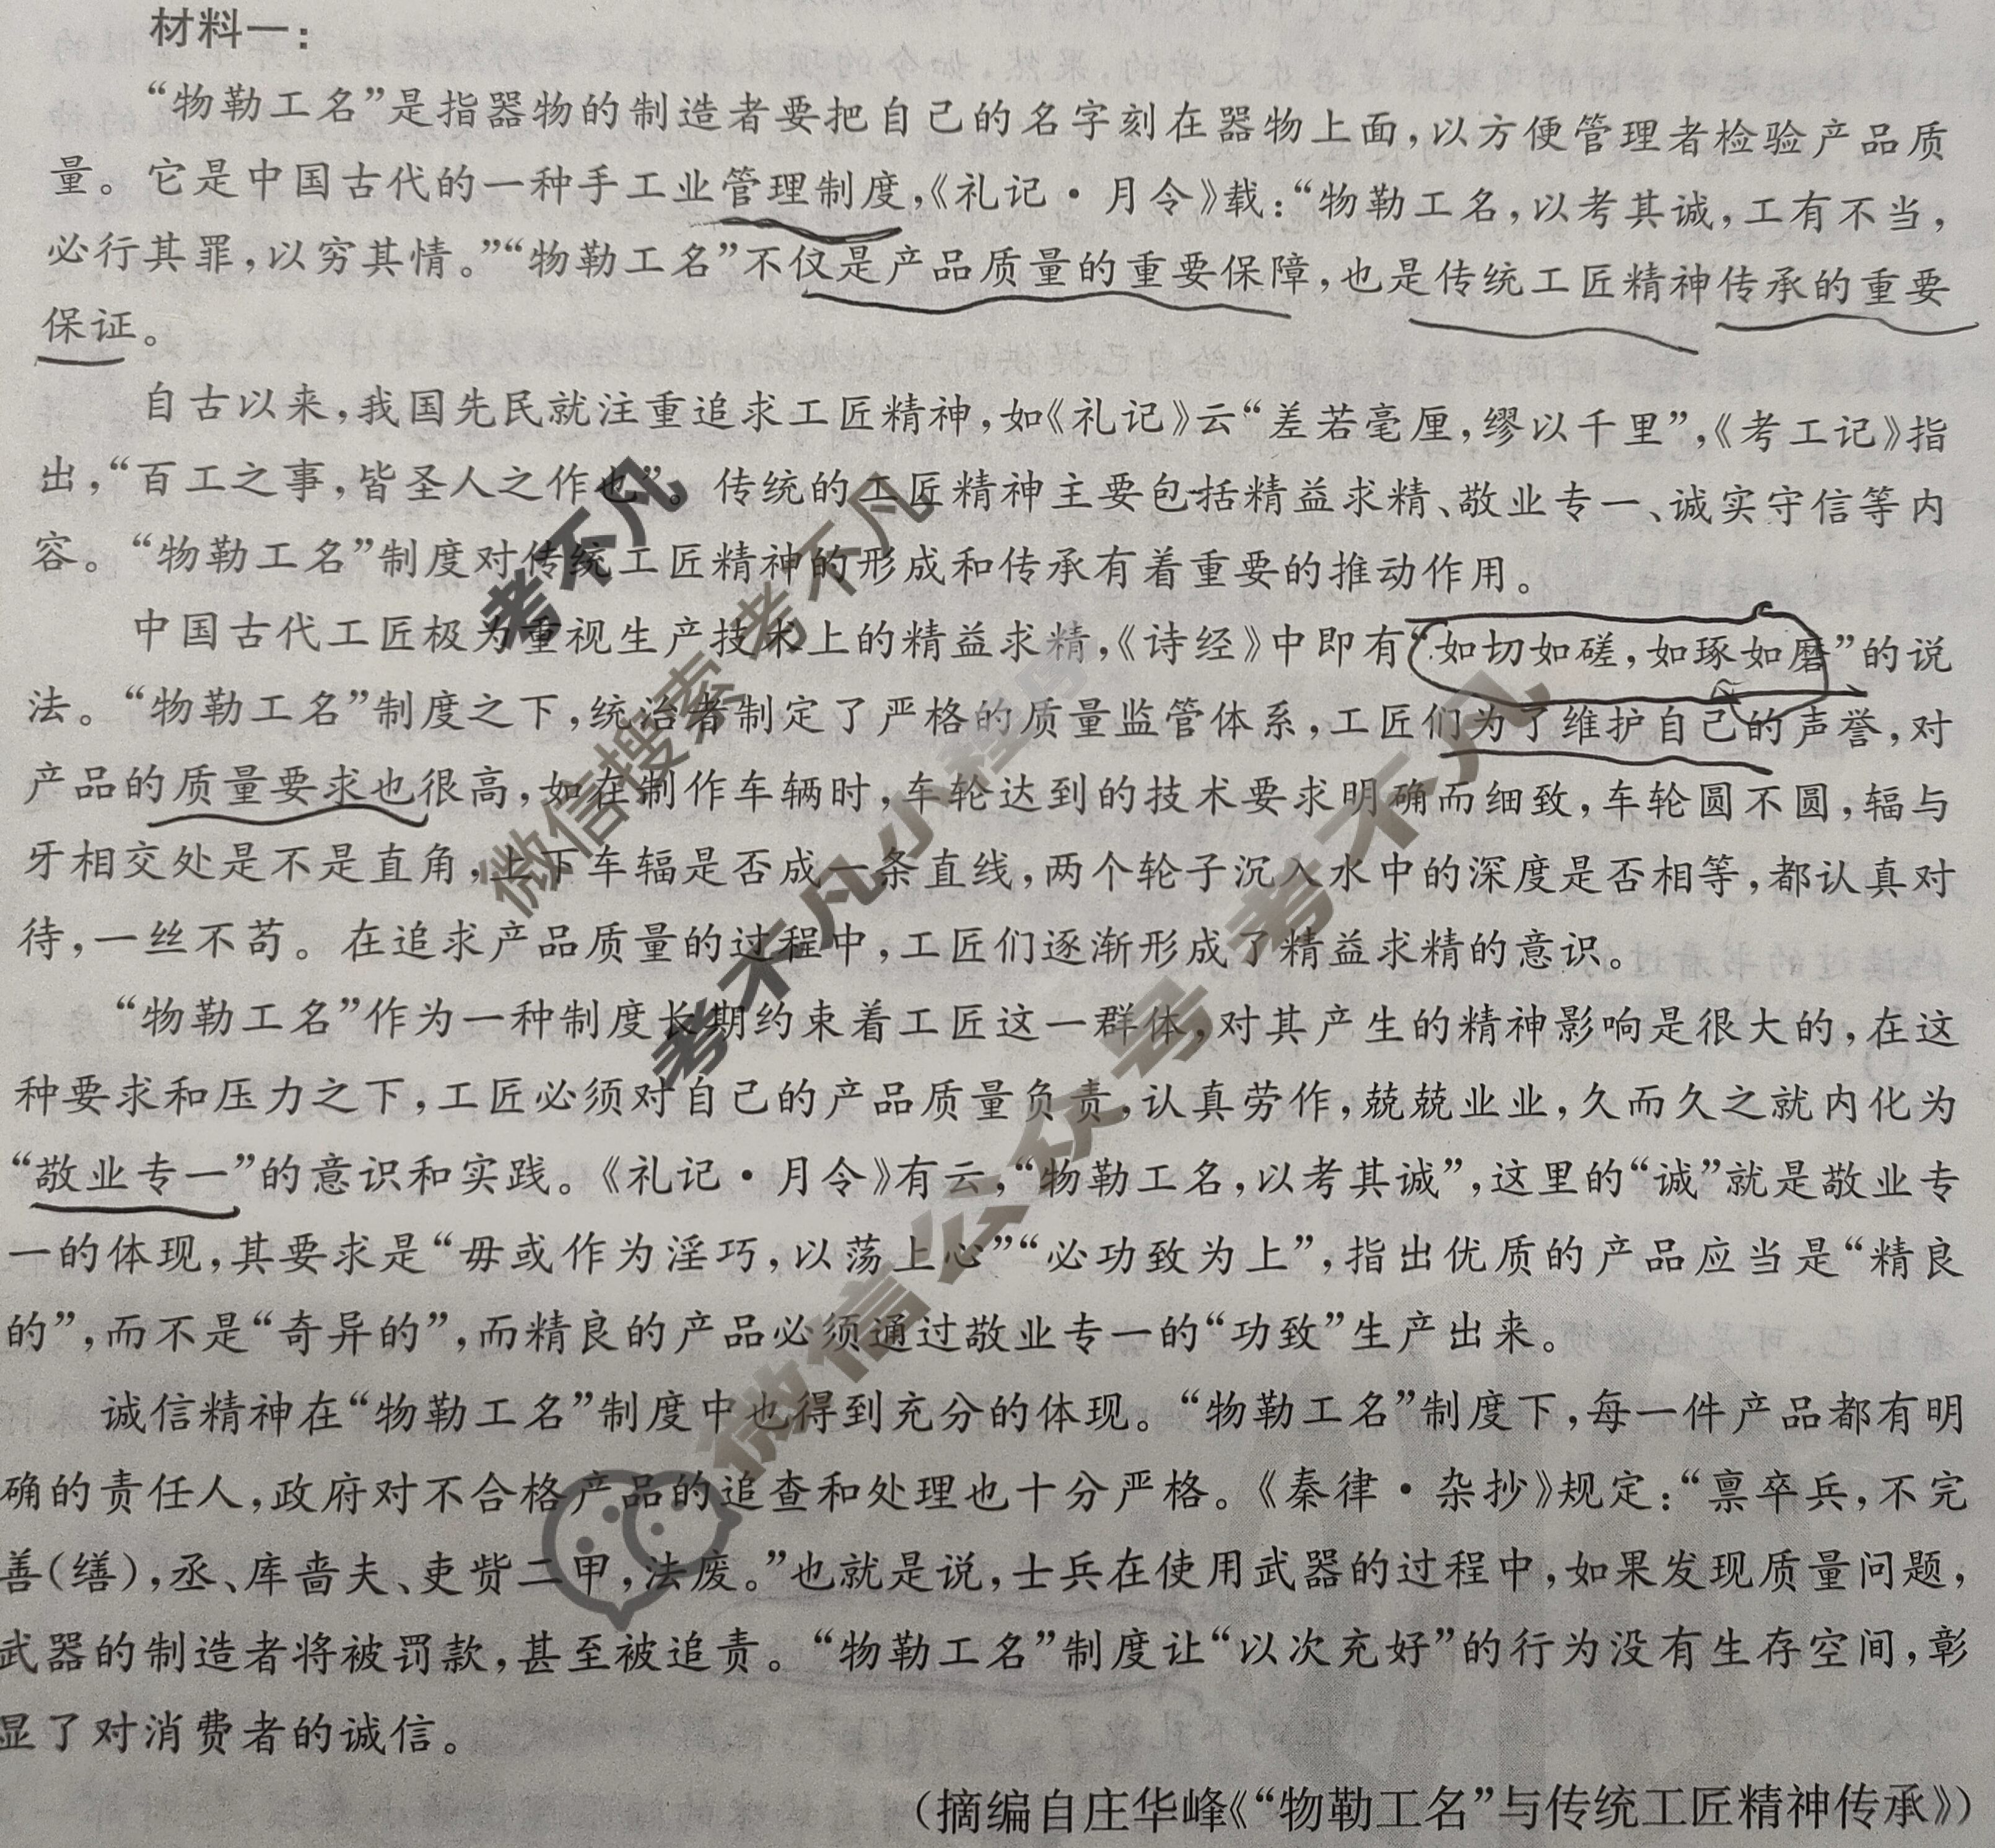 材料一：
“物勒工名”是指器物的制造者要把自己的名字刻在器物上面，以方便管理者检验产品质
量。它是中国古代的一种手工业管理制度，《礼记·月令》载：“物勒工名，以考其诚，工有不当，
必行其罪，以穷其情。”“物勒工名”不仅是产品质量的重要保障，也是传统工匠精神传承的重要
保证。
自古以来，我国先民就注重追求工匠精神，如《礼记》云“差若毫厘，缪以千里”，《考工记》指
出，“百工之事，皆圣人之作也”。传统的工匠精神主要包括精益求精、敬业专一、诚实守信等内
容。“物勒工名”制度对传统工匠精神的形成和传承有着重要的推动作用。
中国古代工匠极为重视生产技术上的精益求精，《诗经》中即有“如切如磋，如琢如磨”的说
法。“物勒工名”制度之下，统治者制定了严格的质量监管体系，工匠们为了维护自己的声誉，对
产品的质量要求也很高，如在制作车辆时，车轮达到的技术要求明确而细致，车轮圆不圆，辐与
牙相交处是不是直角，上下车辐是否成一条直线，两个轮子沉入水中的深度是否相等，都认真对
待，一丝不苟。在追求产品质量的过程中，工匠们逐渐形成了精益求精的意识。
“物勒工名”作为一种制度长期约束着工匠这一群体，对其产生的精神影响是很大的，在这
种要求和压力之下，工匠必须对自己的产品质量负责，认真劳作，兢兢业业，久而久之就内化为
“敬业专一”的意识和实践。《礼记·月令》有云，“物勒工名，以考其诚”，这里的“诚”就是敬业专
一的体现，其要求是“毋或作为淫巧，以荡上心”“必功致为上”，指出优质的产品应当是“精良
的”，而不是“奇异的”，而精良的产品必须通过敬业专一的“功致”生产出来。
诚信精神在“物勒工名”制度中也得到充分的体现。“物勒工名”制度下，每一件产品都有明
确的责任人，政府对不合格产品的追查和处理也十分严格。《秦律·杂抄》规定：“禀卒兵，不完
善（缮），丞、库啬夫、吏赀二甲，法废。”也就是说，士兵在使用武器的过程中，如果发现质量问题，
武器的制造者将被罚款，甚至被追责。“物勒工名”制度让“以次充好”的行为没有生存空间，彰
显了对消费者的诚信。
（摘编自庄华峰《“物勒工名”与传统工匠精神传承》）
考不凡
微信搜索 考不凡
考不凡小程序
微信公众号 考不凡